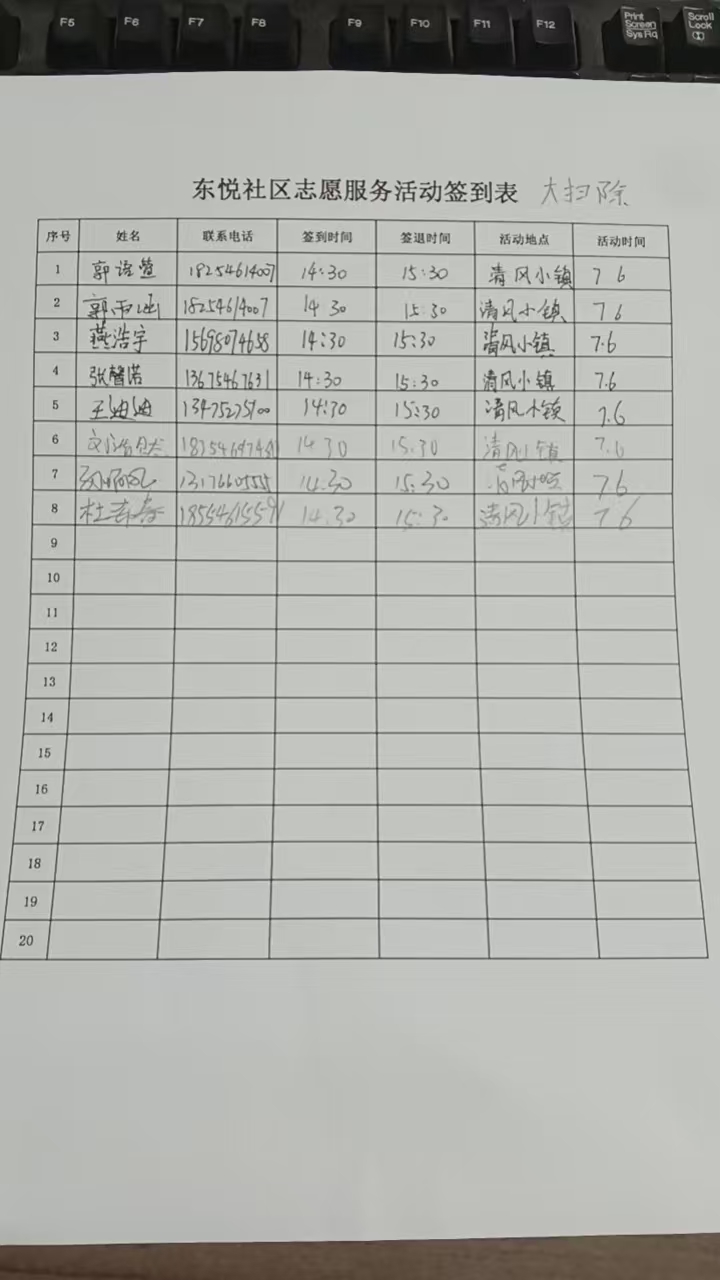 F5 F6 F7 F8 F9 F10 F11 F12 Print Screen Sys Rq Scroll Lock
东悦社区志愿服务活动签到表 大扫除
序号 姓名 联系电话 签到时间 签退时间 活动地点 活动时间
1 郭语萱 18254614007 14:30 15:30 清风小镇 7 6
2 郭雨涵 18254614007 14 30 15:30 清风小镇 7 6
3 燕浩宇 15698074658 14:30 15:30 清风小镇 7.6
4 张馨诺 13675467631 14:30 15:30 清风小镇 7.6
5 王迪迪 13475275700 14:30 15:30 清风小镇 7.6
6 14 30 15.30 清风小镇 7.6
7 14:30 15:30 7 6
8 杜 14:30 15:30 清风小镇 7 6
9
10
11
12
13
14
15
16
17
18
19
20